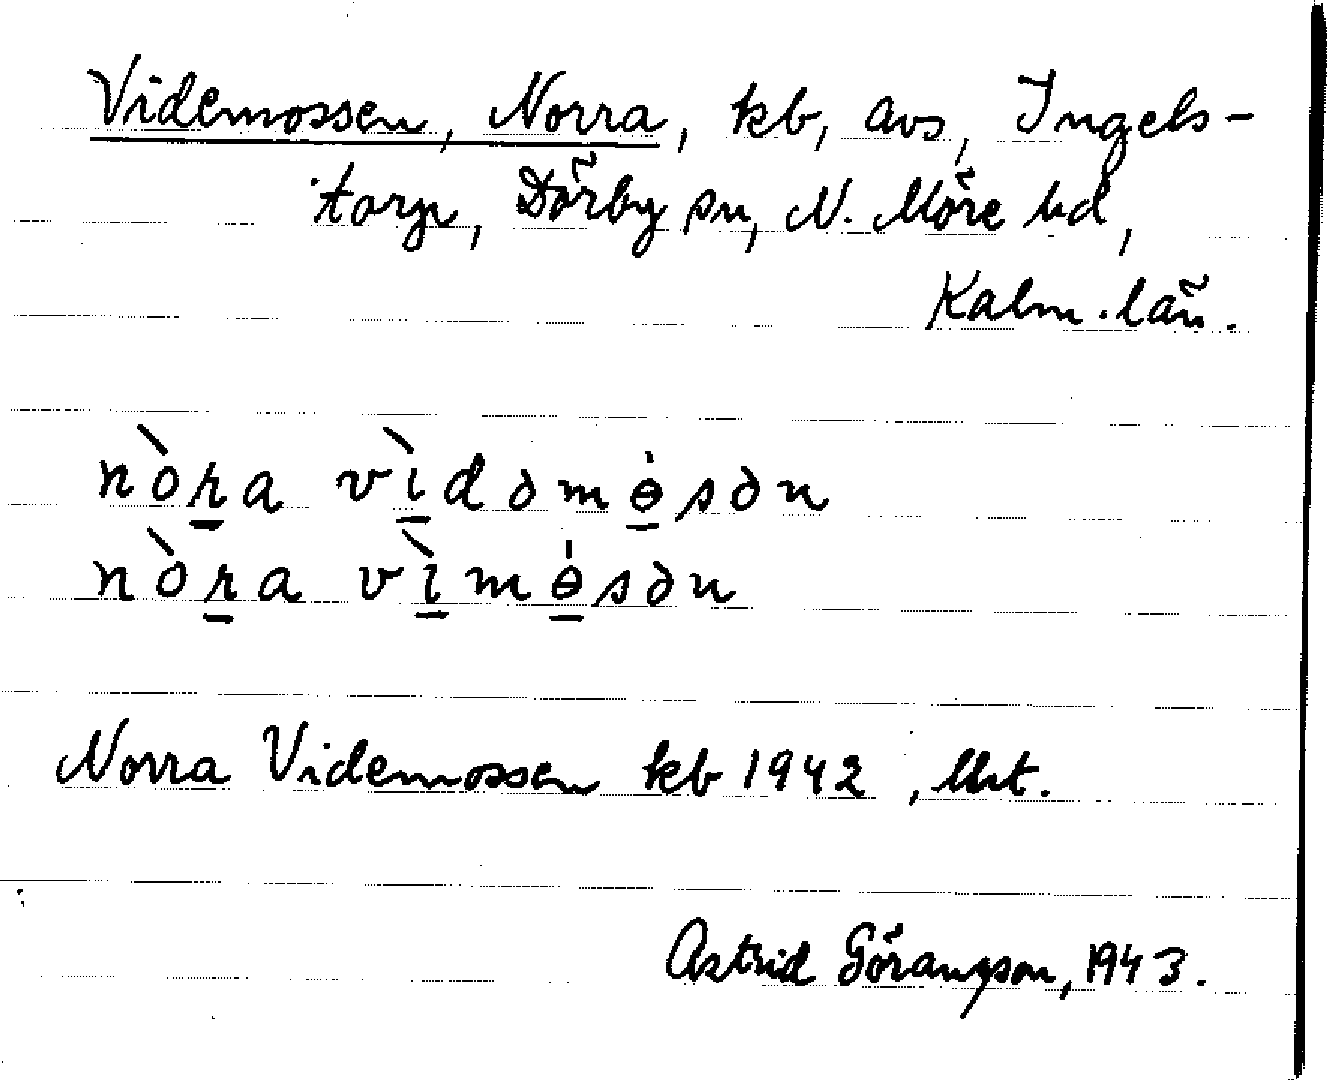 Videmossen, Norra, kb, avs, Ingels-
torp, Dörby sn, N. Möre hd,
Kalm. län.
nòra vìdəmɵ̇sən
nòra vìmɵ̇sən
Norra Videmossen kb 1942,
Astrid Göransson, 1943.